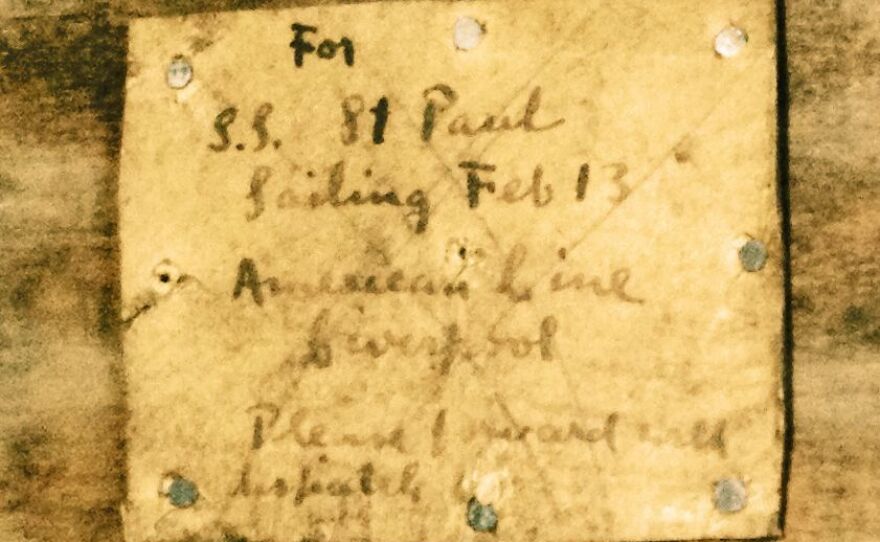 For
S.S. St Paul
Sailing Feb 13
American Line
Liverpool
Please forward with
dispatch